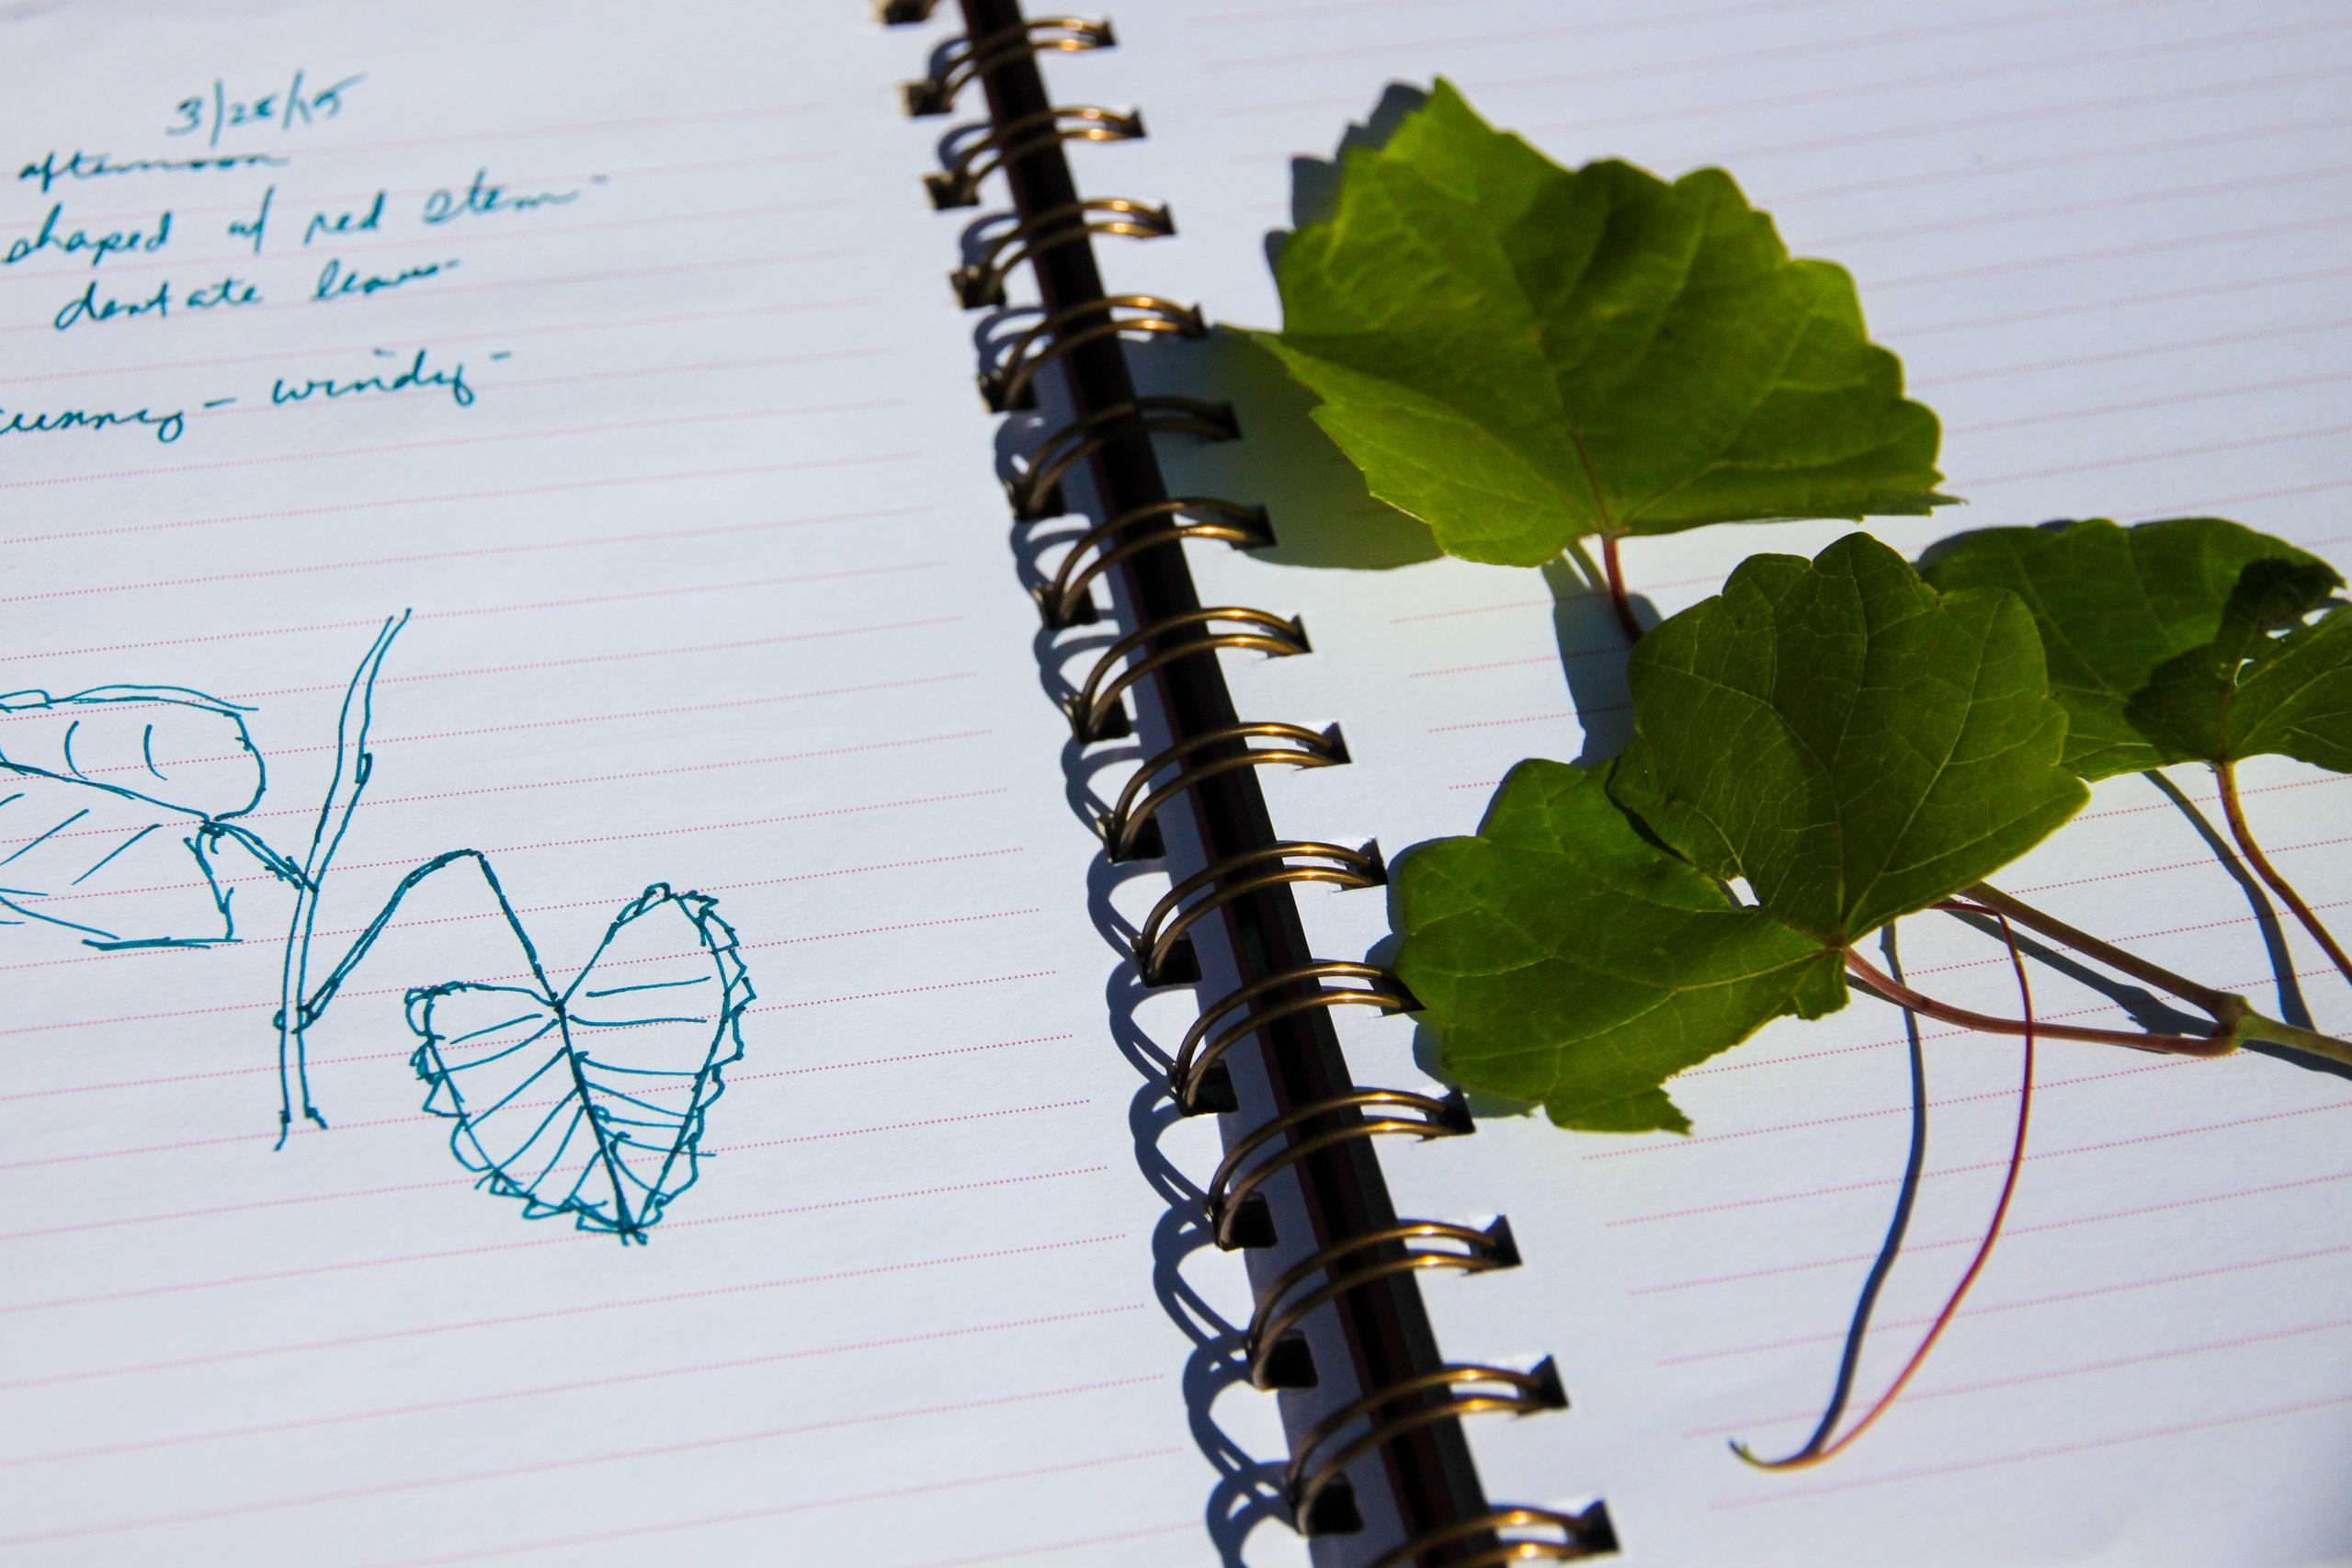 3/28/15
afternoon
shaped w/ red stem -
dentate leaves -
sunny - windy -